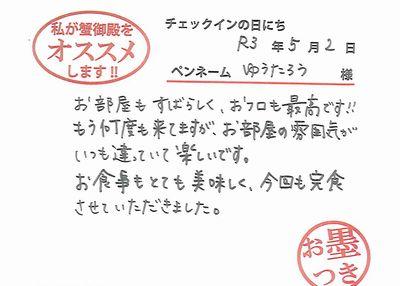 私が蟹御殿を
オススメ
します!!
チェックインの日にち
R3 年 5 月 2 日
ペンネーム ゆうたろう 様
お部屋もすばらしく、おフロも最高です!!
もう何度も来てますが、お部屋の雰囲気が
いつも違っていて楽しいです。
お食事もとても美味しく、今回も完食
させていただきました。
お墨
つき